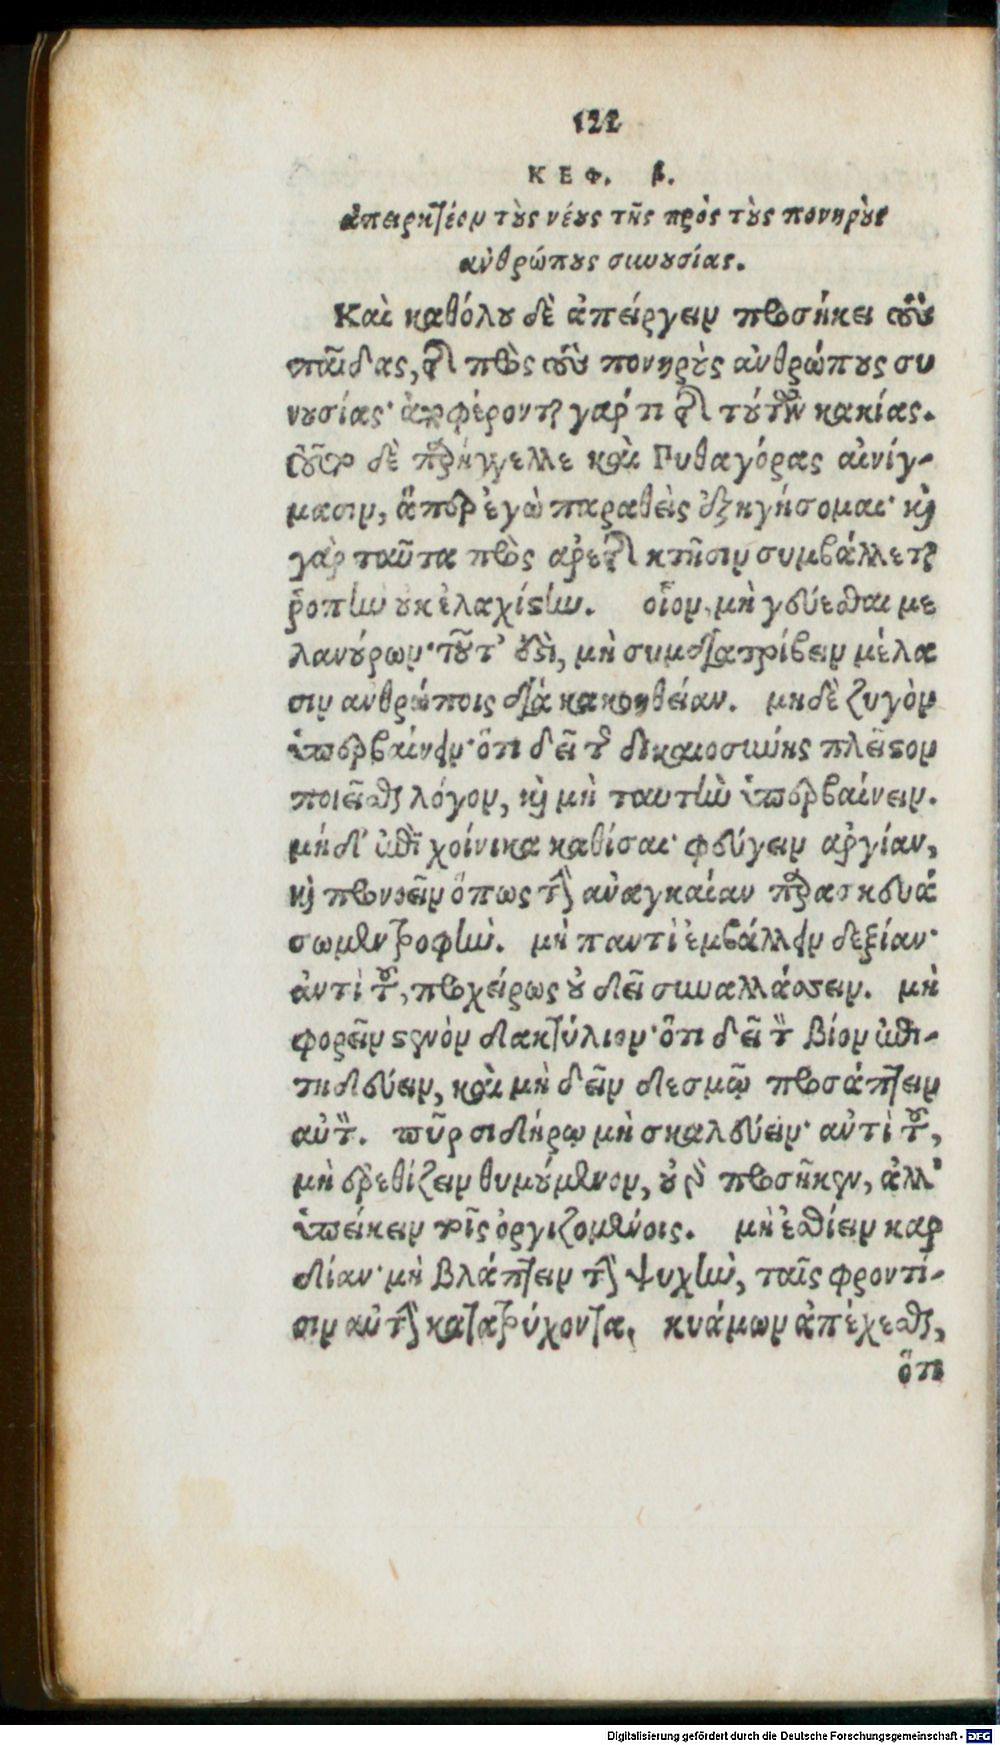 122
ΚΕΦ. β.
ἀπειρκτέον τοὺς νέους τῆς πρὸς τοὺς πονηροὺς
ἀνθρώπους συνουσίας.
Καὶ καθόλου δὲ ἀπείργειν προσήκει τοὺς
παῖδας, τῆς πρὸς τοὺς πονηροὺς ἀνθρώπους συ
νουσίας· ἀποφέρονται γάρ τι τῆς τούτων κακίας.
τοῦτο δὲ παρήγγελλε καὶ Πυθαγόρας αἰνίγ-
μασιν, ἅπερ ἐγὼ παραθεὶς ἐξηγήσομαι· καὶ
γὰρ ταῦτα πρὸς ἀρετῆς κτῆσιν συμβάλλεται
ῥοπὴν οὐκ ἐλαχίστην. οἷον, μὴ γεύεσθαι με
λανούρων· τοῦτ' ἔστι, μὴ συμδιατρίβειν μέλα
σιν ἀνθρώποις διὰ κακοήθειαν. μηδὲ ζυγὸν
ὑπερβαίνειν· ὅτι δεῖ τῆς δικαιοσύνης πλεῖστον
ποιεῖσθαι λόγον, καὶ μὴ ταυτὴν ὑπερβαίνειν.
μήδ' ἐπὶ χοίνικα καθίσαι· φεύγειν ἀργίαν,
καὶ προνοεῖν ὅπως τὴν ἀναγκαίαν παρασκευά
σωμεν τροφήν. μὴ παντὶ ἐμβάλλειν δεξίαν·
ἀντὶ τοῦ, προχείρως οὐ δεῖ συναλλάσσειν. μὴ
φορεῖν στενὸν δακτύλιον· ὅτι δεῖ τὸν βίον ἐπι-
τηδεύειν, καὶ μὴ δεῖν δεσμῷ προσάπτειν
αὐτόν. πῦρ σιδήρῳ μὴ σκαλεύειν· αὐτὶ τοῦ,
μὴ ἐρεθίζειν θυμούμενον, οὐ γὰρ προσῆκεν, ἀλλ'
ὑπείκειν τοῖς ὀργιζομένοις. μὴ ἐσθίειν καρ
δίαν· μὴ βλάπτειν τὴν ψυχὴν, ταῖς φροντί-
σιν αὐτὴν κατατρύχοντα. κυάμων ἀπέχεσθαι,
ὅτι
Digitalisierung gefördert durch die Deutsche Forschungsgemeinschaft - DFG